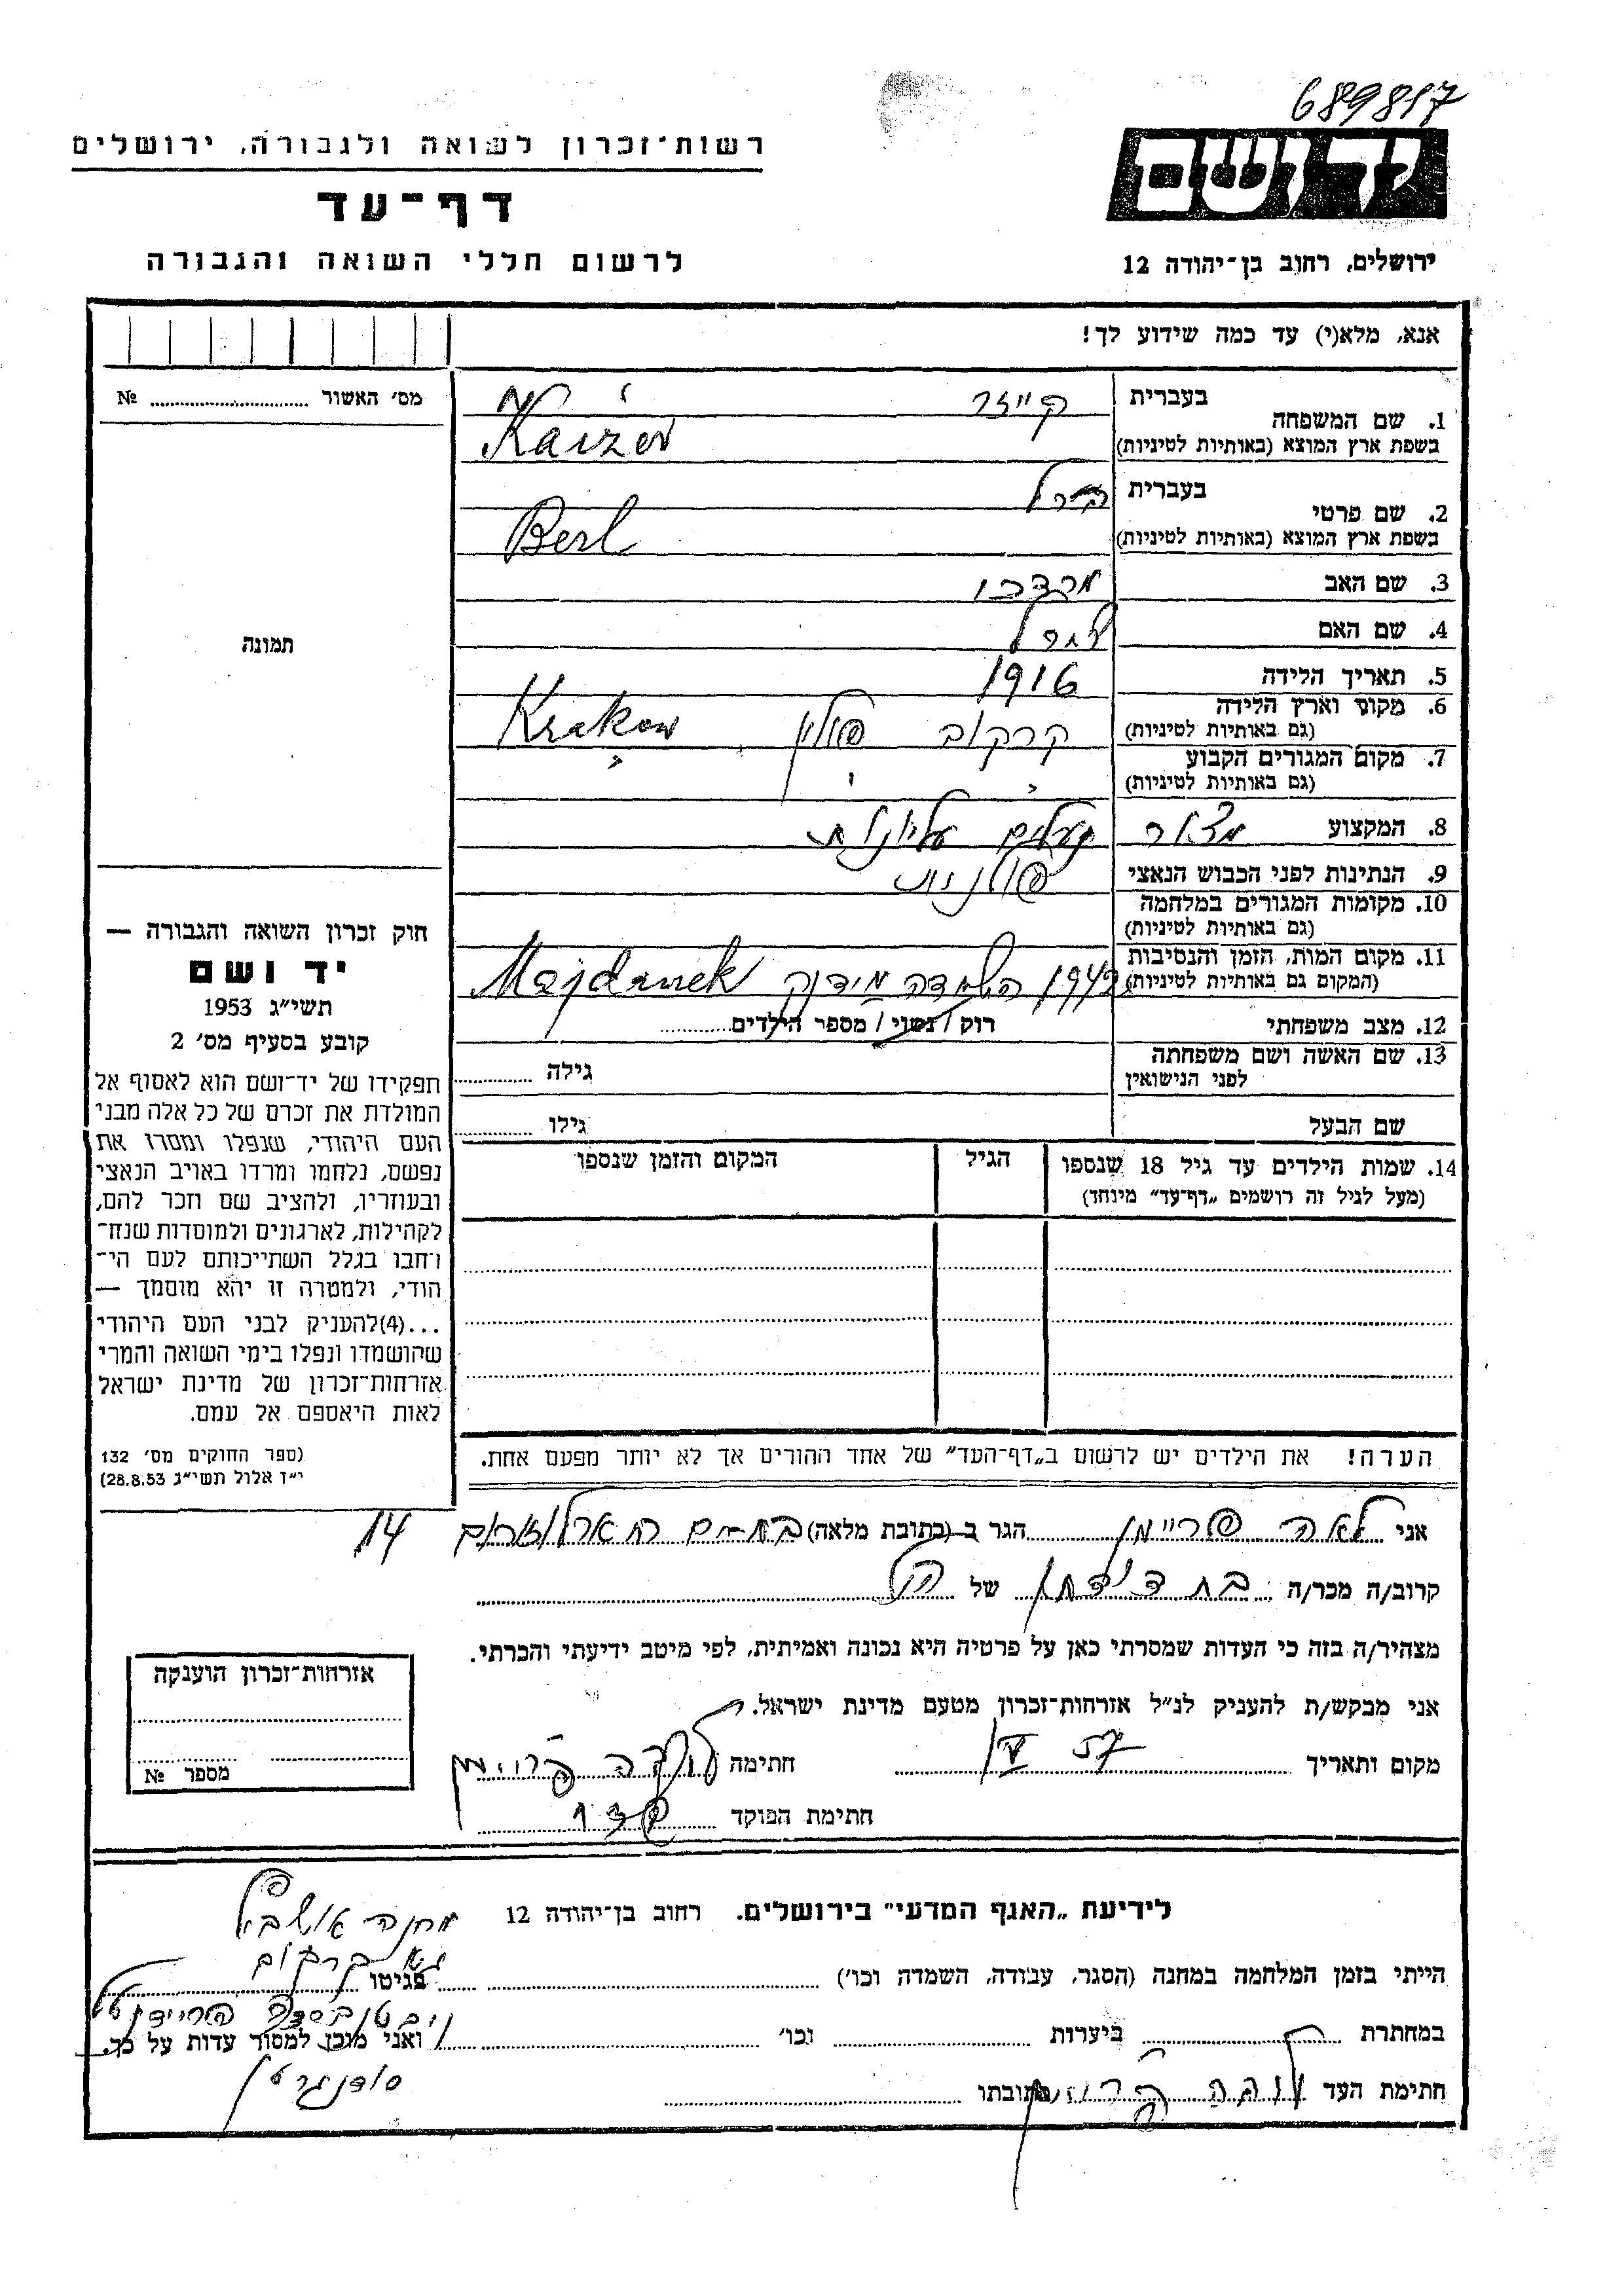 689817
רשות־זכרון לשואה ולגבורה, ירושלים
יד ושם
דף־עד
לרשום חללי השואה והגבורה
ירושלים, רחוב בן־יהודה 12
אנא, מלא(י) עד כמה שידוע לך!
מס׳ האשור № 
תמונה
1. שם המשפחה
בעברית קייזר
בשפת ארץ המוצא (באותיות לטיניות) Kaizer
2. שם פרטי
בעברית ברל
בשפת ארץ המוצא (באותיות לטיניות) Berl
3. שם האב מרדכי
4. שם האם
5. תאריך הלידה 1916
6. מקום וארץ הלידה
(גם באותיות לטיניות) קרקוב פולין Krakow
7. מקום המגורים הקבוע
(גם באותיות לטיניות)
8. המקצוע נעלים עליונות
9. הנתינות לפני הכבוש הנאצי פולנית
10. מקומות המגורים במלחמה
(גם באותיות לטיניות)
11. מקום המות, הזמן והנסיבות
(המקום גם באותיות לטיניות) 1942 השמדה מידנק Majdanek
12. מצב משפחתי רוק / נשוי / מספר הילדים
13. שם האשה ושם משפחתה
לפני הנישואין גילה
שם הבעל גילו
14. שמות הילדים עד גיל 18 שנספו הגיל המקום והזמן שנספו
(מעל לגיל זה רושמים „דף־עד״ מיוחד)
הערה! את הילדים יש לרשום ב„דף־העד״ של אחד ההורים אך לא יותר מפעם אחת.
חוק זכרון השואה והגבורה —
יד ושם
תשי״ג 1953
קובע בסעיף מס׳ 2
תפקידו של יד־ושם הוא לאסוף אל
המולדת את זכרם של כל אלה מבני
העם היהודי, שנפלו ומסרו את
נפשם, נלחמו ומרדו באויב הנאצי
ובעוזריו, ולהציב שם וזכר להם,
לקהילות, לארגונים ולמוסדות שנח־
רבו בגלל השתייכותם לעם הי־
הודי, ולמטרה זו יהא מוסמך —
...(4)להעניק לבני העם היהודי
שהושמדו ונפלו בימי השואה והמרי
אזרחות־זכרון של מדינת ישראל
לאות היאספם אל עמם.
(ספר החוקים מס׳ 132
י״ז אלול תשי״ג 28.8.53)
אני לאה פריימן הגר ב (כתובת מלאה) בת־ים ארלוזורוב 14
קרוב/ה מכר/ה בת דודתו של הנ״ל
מצהיר/ה בזה כי העדות שמסרתי כאן על פרטיה היא נכונה ואמיתית, לפי מיטב ידיעתי והכרתי.
אני מבקש/ת להעניק לנ״ל אזרחות־זכרון מטעם מדינת ישראל.
מקום ותאריך 57 חתימה
חתימת הפוקד
אזרחות־זכרון הוענקה
מספר №
לידיעת „האגף המדעי״ בירושלים. רחוב בן־יהודה 12
הייתי בזמן המלחמה במחנה (הסגר, עבודה, השמדה וכו׳) בגיטו
מחנה
במחתרת ביערות וכו׳ ואני מוכן למסור עדות על כך.
חתימת העד כתובתו